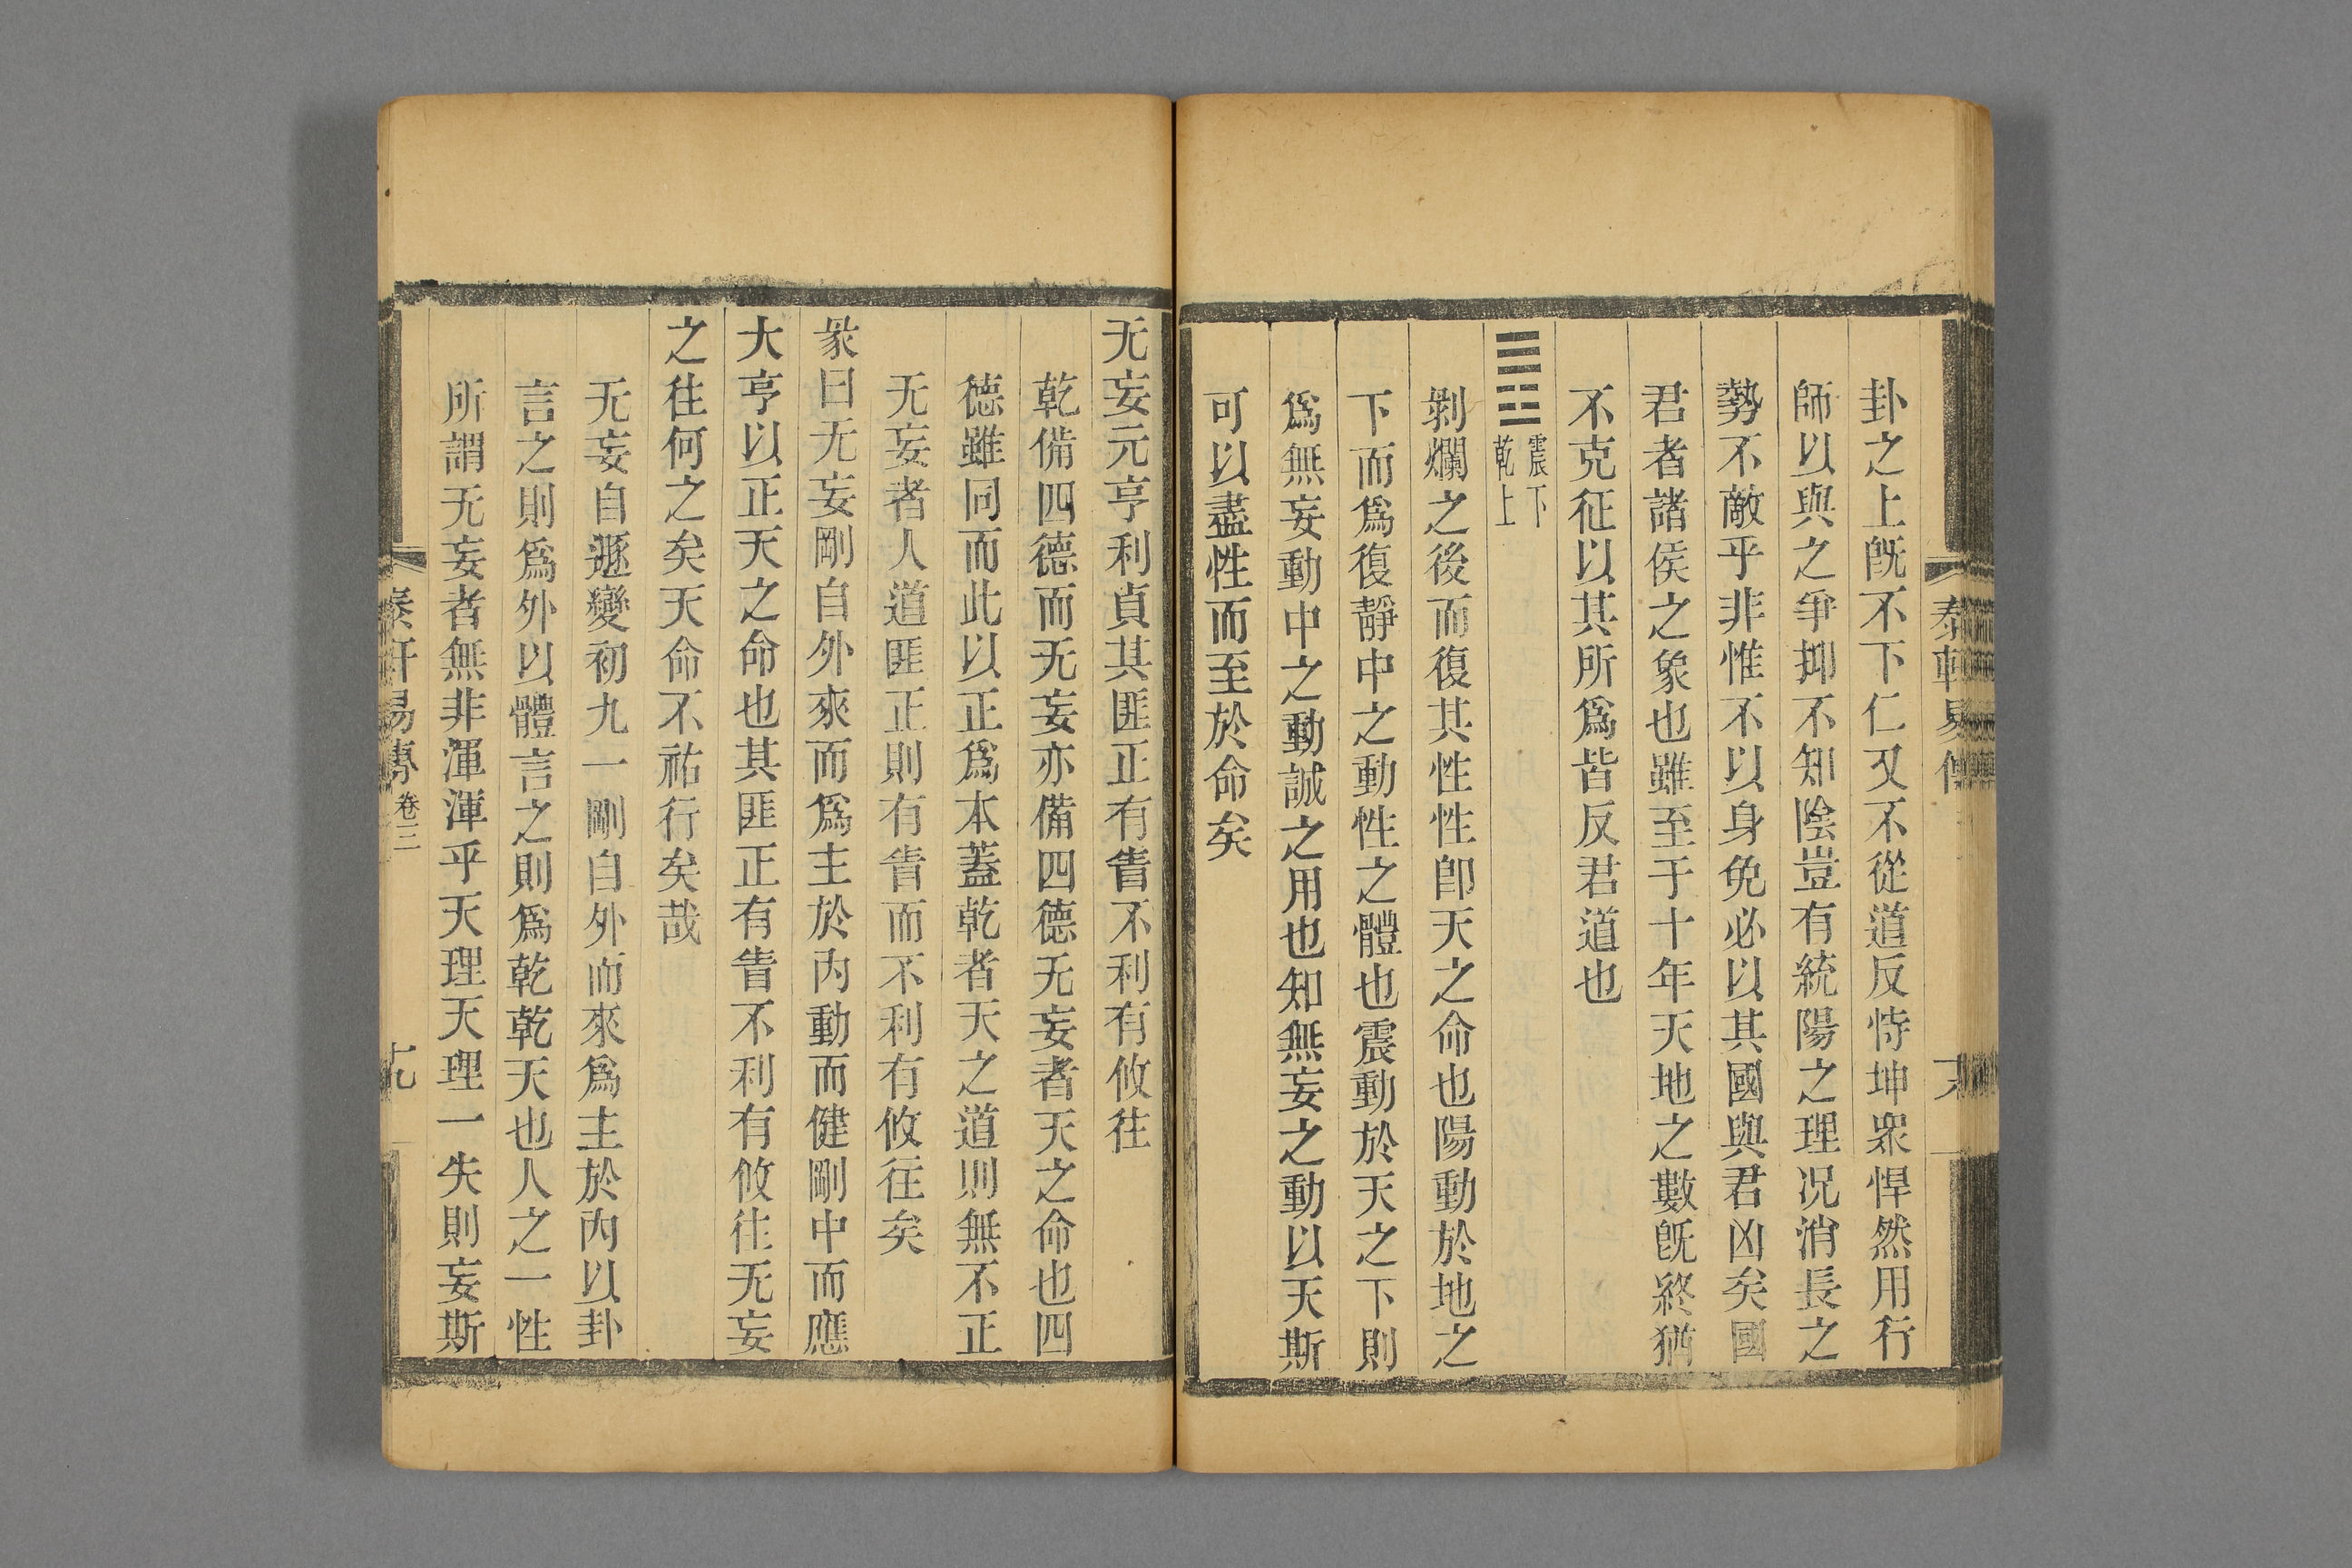 卦之上旣不下仁又不從道反恃坤衆悍然用行
師以與之爭抑不知陰豈有統陽之理况消長之
勢不敵乎非惟不以身免必以其國與君凶矣國
君者諸侯之象也雖至于十年天地之數旣終猶
不克征以其所爲皆反君道也
震下
乾上
剝爛之後而復其性性卽天之命也陽動於地之
下而爲復靜中之動性之體也震動於天之下則
爲無妄動中之動誠之用也知無妄之動以天斯
可以盡性而至於命矣
无妄元亨利貞其匪正有眚不利有攸往
乾備四德而无妄亦備四德无妄者天之命也四
德雖同而此以正爲本蓋乾者天之道則無不正
无妄者人道匪正則有眚而不利有攸往矣
彖曰无妄剛自外來而爲主於內動而健剛中而應
大亨以正天之命也其匪正有眚不利有攸往无妄
之往何之矣天命不祐行矣哉
无妄自遯變初九一剛自外而來爲主於內以卦
言之則爲外以體言之則爲乾乾天也人之一性
所謂无妄者無非渾渾乎天理天理一失則妄斯
泰軒易傳 卷三
十九